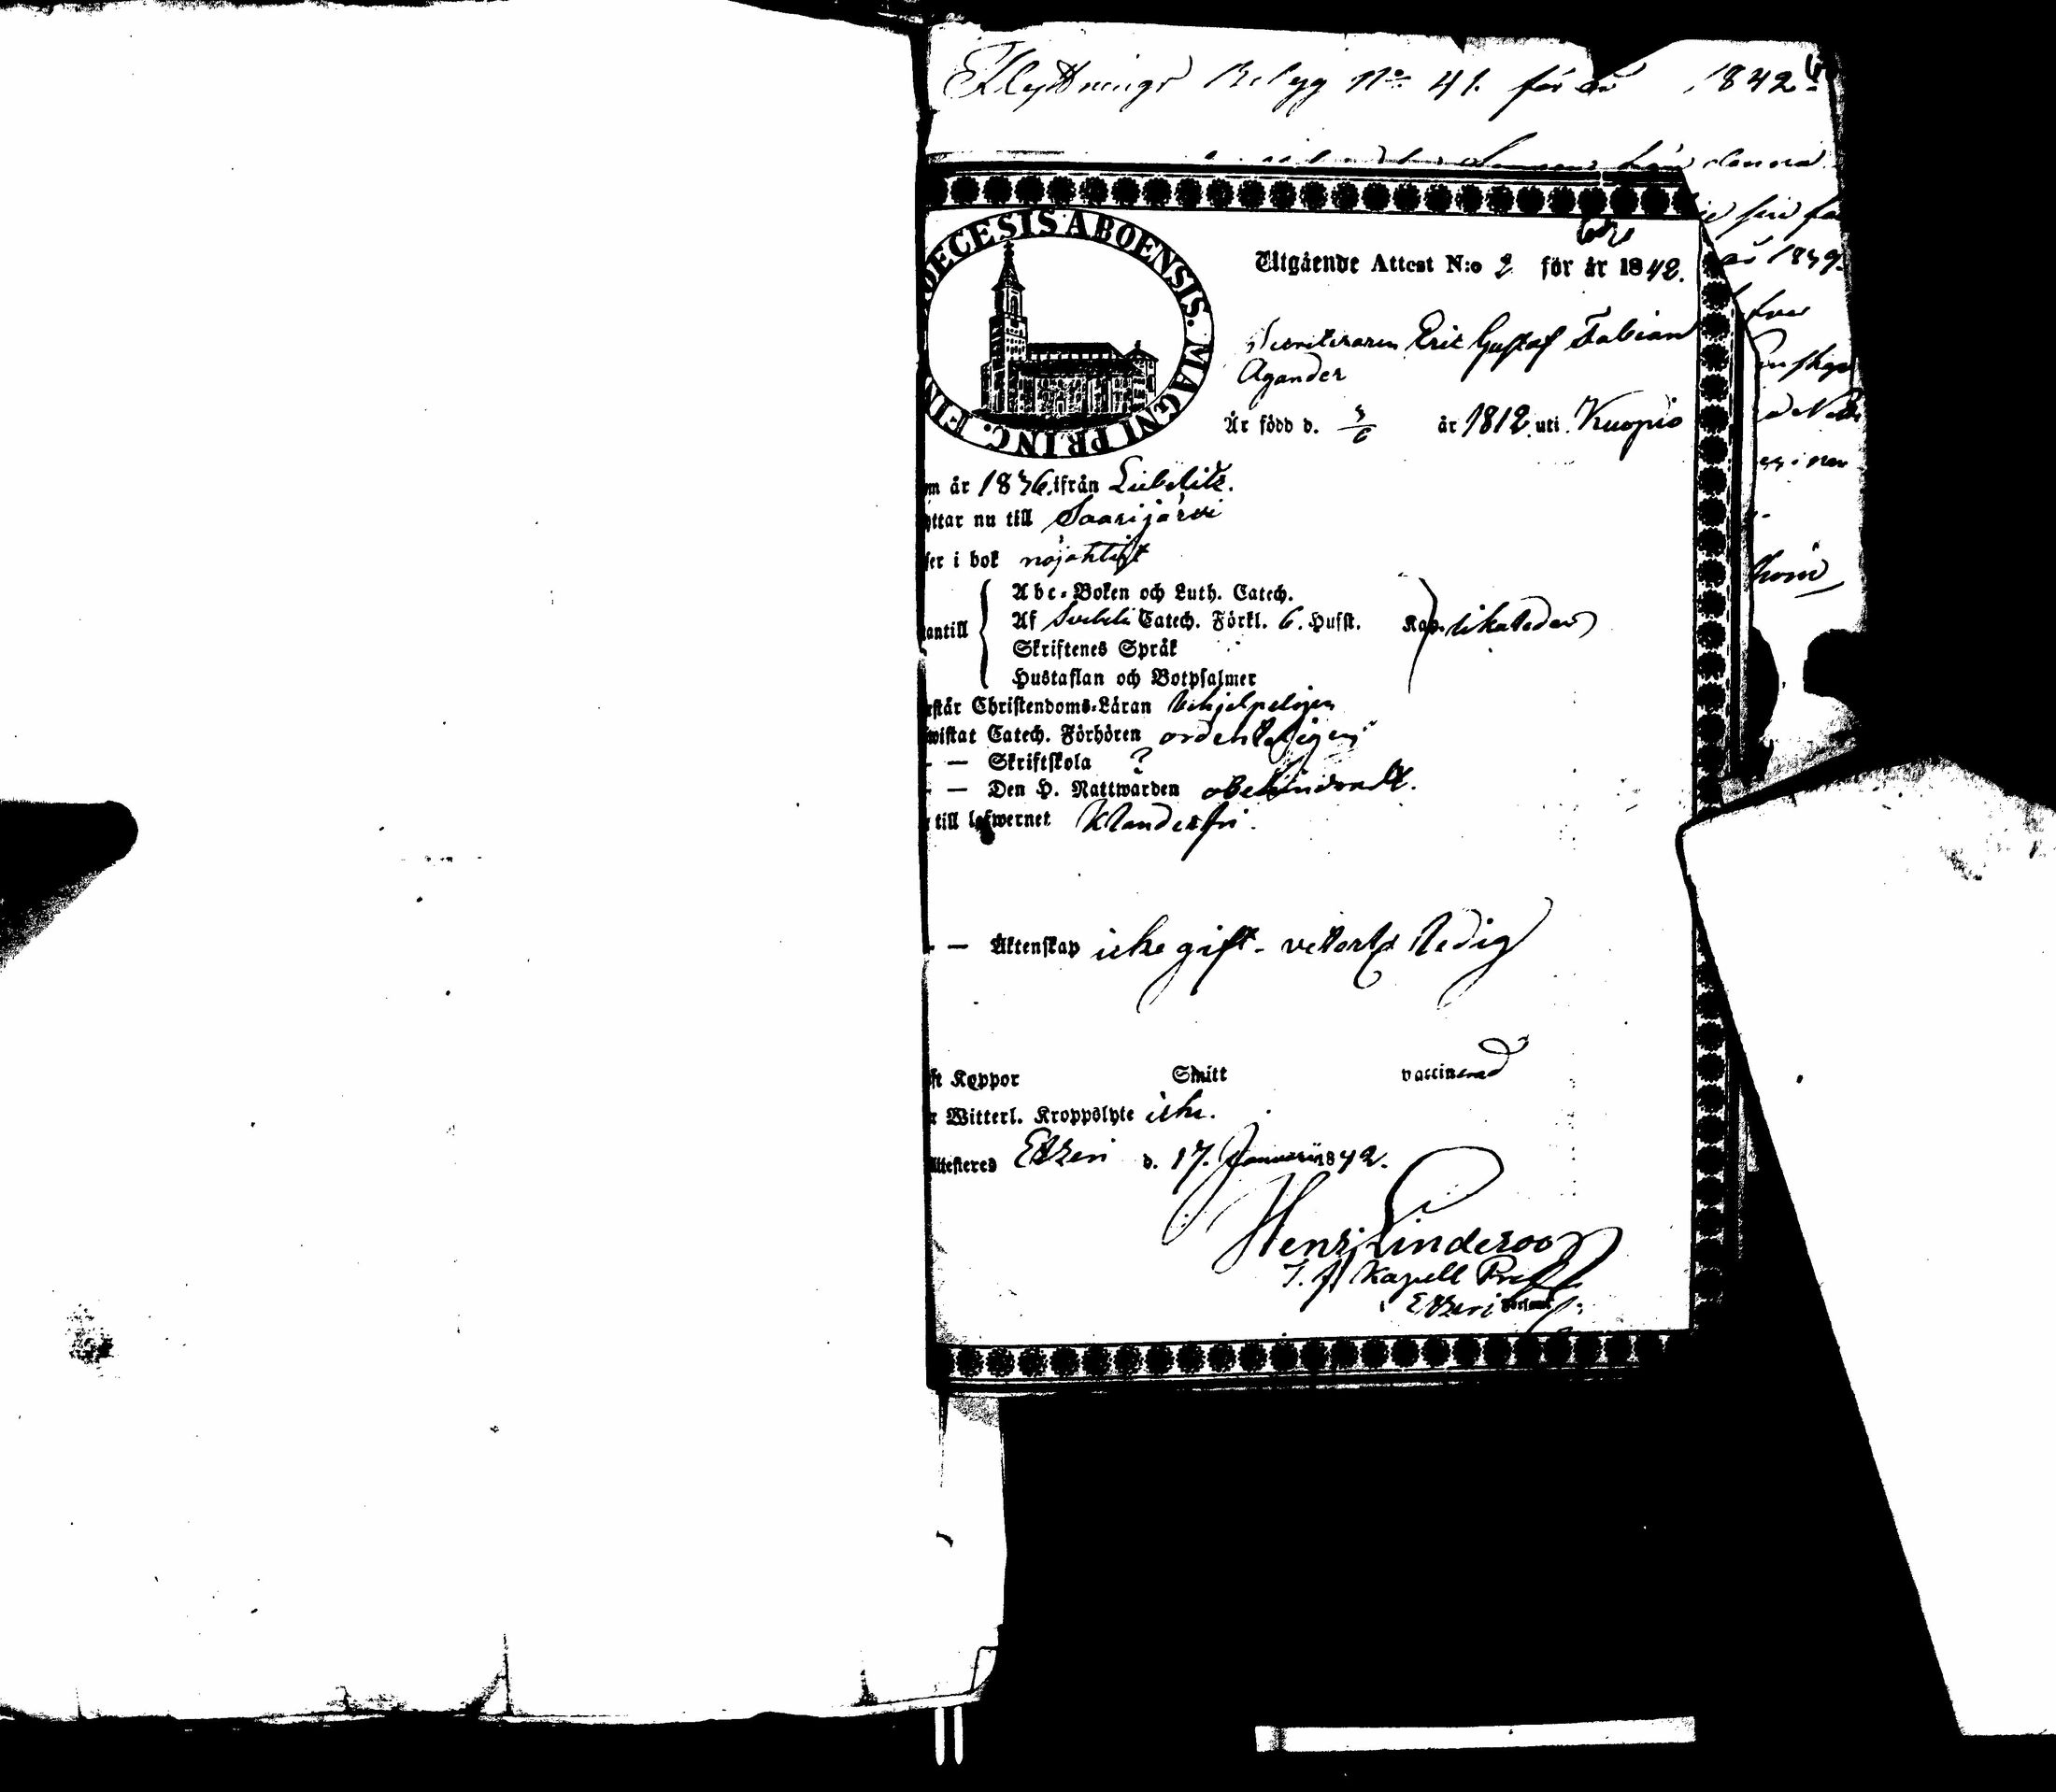 Flyttnings Belyg No 41. för år 1842
denna
år 1839.
DECESIS ABOENSIS. MAGNI PRINC. FIN
Utgående Attest N:o 2 för år 1842.
Erik Gustaf Fabian
Agander
Är född d. 3/6 år 1812 uti Kuopio
om år 1836 ifrån Libelitz.
yttar nu till Saarijärvi
ser i bok nöjaktigt
Abc-Boken och Luth. Catech.
antill Af Svebeli Catech. Förkl. 6. Hufst. Kap. likaledes
Skriftenes Språk
Hustaflan och Botpsalmer
rstår Christendoms-Läran behjelpeligen
wistat Catech. Förhören ordenteligen
— — Skriftskola ?
— — Den H. Nattwarden obehindradt.
till lefwernet Klanderfri.
— — Äktenskap icke gift - ledig
ft Koppor Smitt vaccinerad
r Witterl. Kroppslyte icke.
Attesteras Etseri d. 17. Januarii 1842.
Henr. Linderoos
Kapell
Etseri